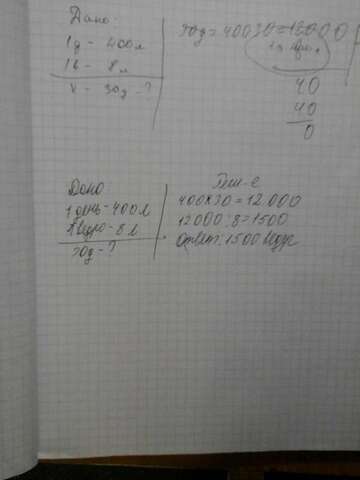 Дано.
1д - 400л
1в - 8л
х - 30д - ?
30д = 40030 = 12000
40
40
0
Дано
1 день - 400 л
1 ведро - 8 л
30д - ?
Реш-е
400х30 = 12.000
12000:8 = 1500
Ответ: 1500 ведр